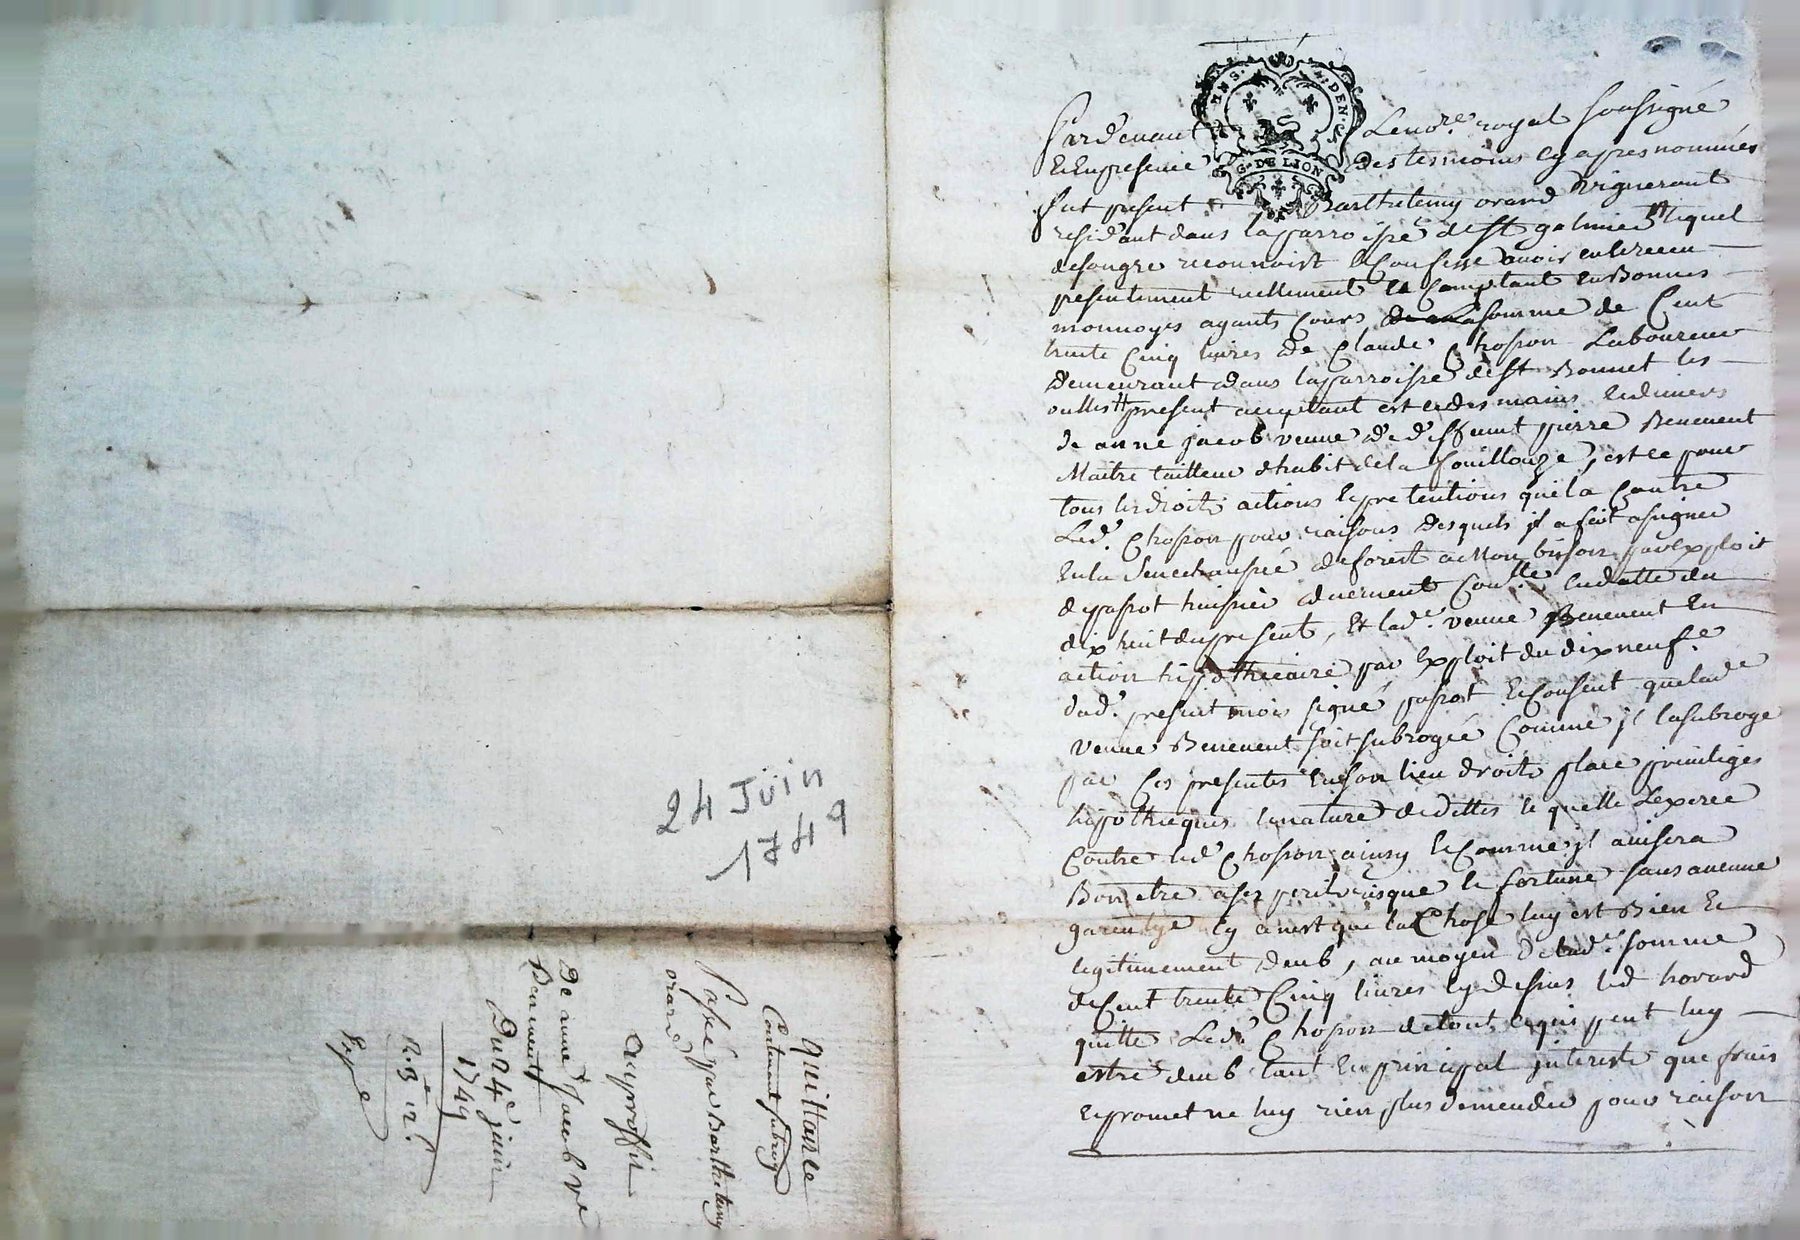 24 Juin
1749
quittance
Contenant subrog
Passé par Barthelemy
orard
au proffit
De anne Jacob ve
Benevent
Du 24e juin
1749
Expe
MNS. 4. DEN.
G. DE LION
Pardevant Le nore. royal soussigné
Et En presence des tesmoins cy apres nommés
fut present Barthelemy orard vigneront
residant dans la parroisse de st galmier lequel
de son gre reconnoist et Confesse avoir eu et receu
presentement reellement et Comptant en Bonnes
monnoyes ayants Cours la somme de Cent
trente Cinq livres de Claude Chosson Laboureur
demeurant dans la parroisse de st Bonnet les
oulles present acceptant est ce des mains et deniers
de anne jacob veuve de deffunt pierre Benevent
Maitre tailleur d'habit de la fouillouze, est ce pour
tous les droits actions et pretentions quil a Contre
Led. Chosson pour raisons desquels il a fait assigner
En la Senechaussée de forest a Montbrison par Exploit
de passot huissier duement Conllé en datte du
dix huit du present, Et lad. veuve Benevent En
action hipothecaire par Exploit du dix neuf.e
dud. present mois signé passot Et Consent que lad.e
veuve Benevent soit subrogée Comme il la subroge
par Ces presentes En son lieu droits place privileges
hipotheques et nature de dettes le quelle L'exerce
Contre led. Chosson ainsy Et Comme il avisera
Bon etre a ses perils risque et fortune sans aucune
garentye sy ce n'est que la Chose luy est Bien Et
legitimement deub, au moyen de lad.e somme
de Cent trente Cinq livres Cy dessus led horard
quitte Led. Chosson de tout ce qui peut luy
estre deub tant En principal interests que frais
Et promet ne luy rien plus demender pour raison